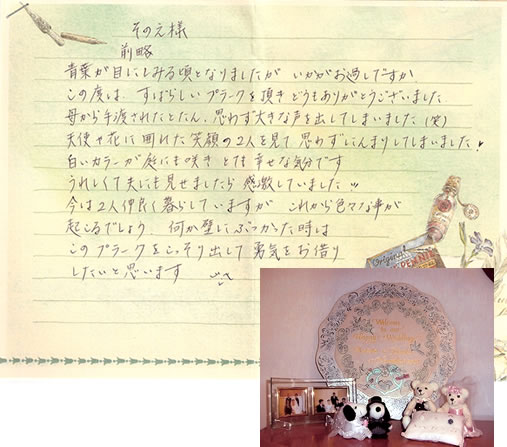 そのえ様
前略
青葉が目にしみる頃となりましたが いかがお過しですか
この度は、すばらしいプラークを頂き どうもありがとうございました
母から手渡されたとたん、思わず大きな声を出してしまいました(笑)
天使や花に囲れた笑顔の2人を見て 思わずにんまりしてしまいました♥
白いカラーが庭にも咲き とても幸せな気分です
うれしくて夫にも見せましたら 感激していました
今は2人仲良く暮らしていますが これから色々な事が
起こるでしょう 何か壁にぶつかった時は
このプラークをこっそり出して 勇気をお借り
したいと思います
Original
Welcome
to our
Happy Wedding